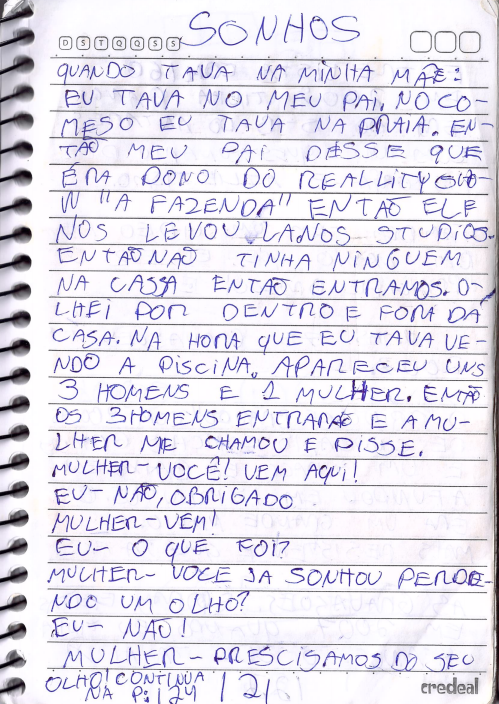 SONHOS
D S T Q Q S S
QUANDO TAVA NA MINHA MÃE:
EU TAVA NO MEU PAI. NO CO-
MESO EU TAVA NA PRAIA. EN-
TÃO MEU PAI DESSE QUE
ÉRA DONO DO REALLITY SHO-
W "A FAZENDA" ENTÃO ELE
NOS LEVOU LA.NOS STUDIOS.
ENTÃO NÃO TINHA NINGUEM
NA CASSA ENTÃO ENTRAMOS. O-
LHEI POR DENTRO E FORA DA
CASA. NA HORA QUE EU TAVA VE-
NDO A PISCINA, APARECEU UNS
3 HOMENS E 1 MULHER. ENTÃO
OS 3 HOMENS ENTRARÃO E A MU-
LHER ME CHAMOU E DISSE.
MULHER- VOCÊ! VEM AQUI!
EU- NÃO, OBRIGADO
MULHER- VEM!
EU- O QUE FOI?
MULHER- VOCE JA SONHOU PERDE-
NDO UM OLHO?
EU- NÃO!
MULHER- PRESCISAMOS DO SEU
OLHO! CONTINUA
NA P:124 121
credeal